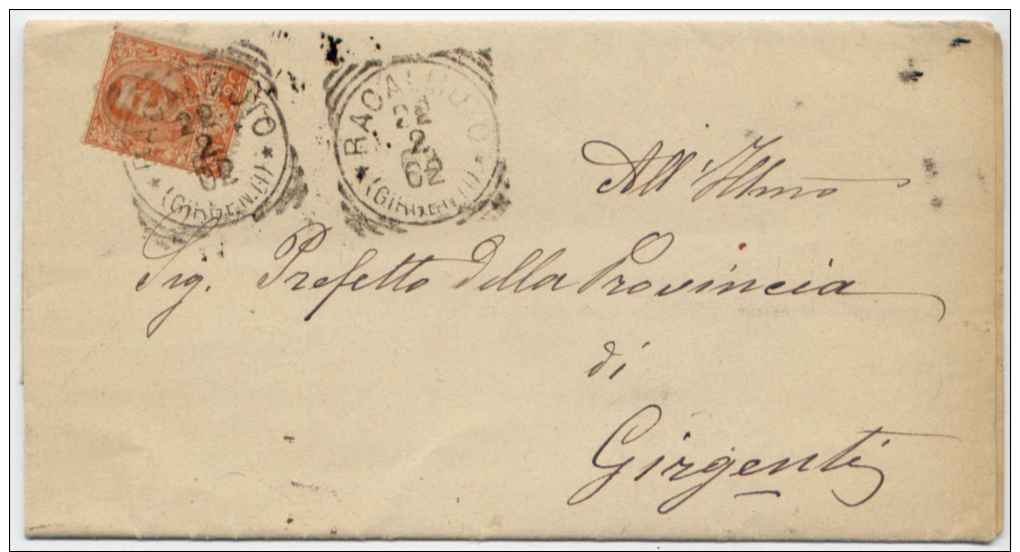 RACALMUTO
2
62
(GIRGENTI)
RACALMUTO
2
62
(GIRGENTI)
All'Illmo
Sig. Prefetto della Provincia
di
Girgenti